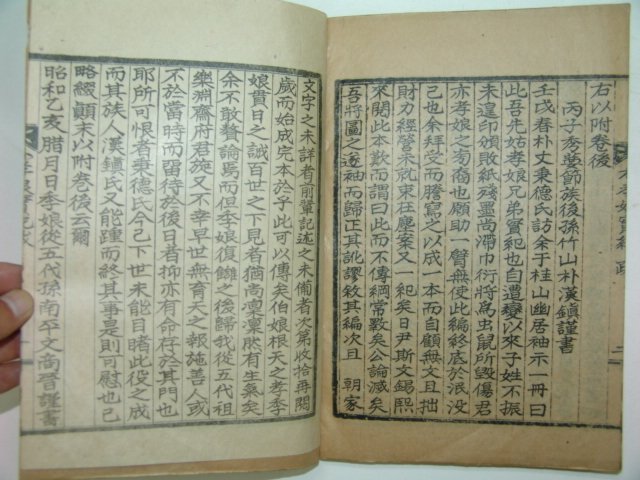 右以附卷後
丙子秀葽節族後孫竹山朴漢鎭謹書
壬戌春朴丈秉德氏訪余于桂山幽居袖示一冊曰
此吾先姑孝娘兄弟實紀也自遭變以來子姓不振
未遑印頒敗紙殘墨尚滯巾衍將爲虫鼠所毁傷君
亦孝娘之彛裔也願助一臂無使此編終底於泯没
己也余拜受而謄寫之以成一本而自顧無文且拙
財力經營未就束在塵案又一紀矣日尹斯文錫熙
來閱此本歎而謂曰此而不傳綱常斁矣公論滅矣
吾將圖之遂袖而歸正其訛謬敘其編次且 朝家
文字之未詳者前輩記述之未備者次第收拾再閱
歲而始成完本於乎此可以傳矣伯娘根天之孝季
娘貫日之誠百世之下見者猶尚凜凜然有生氣矣
余不敢贅論焉而但李娘復讎之後歸我從五代祖
樂淵齋府君旋又不幸早世無育天之報施善人或
不於當時而待於後日者抑亦有命存於其門也
耶所可恨者秉德氏今己下世未能目睹此役之成
而其族人漢鎭氏又能踵而終其事是則可慰也已
略綴顚末以附卷後云爾
昭和乙亥腊月日李娘從五代孫南平文尚晋謹書